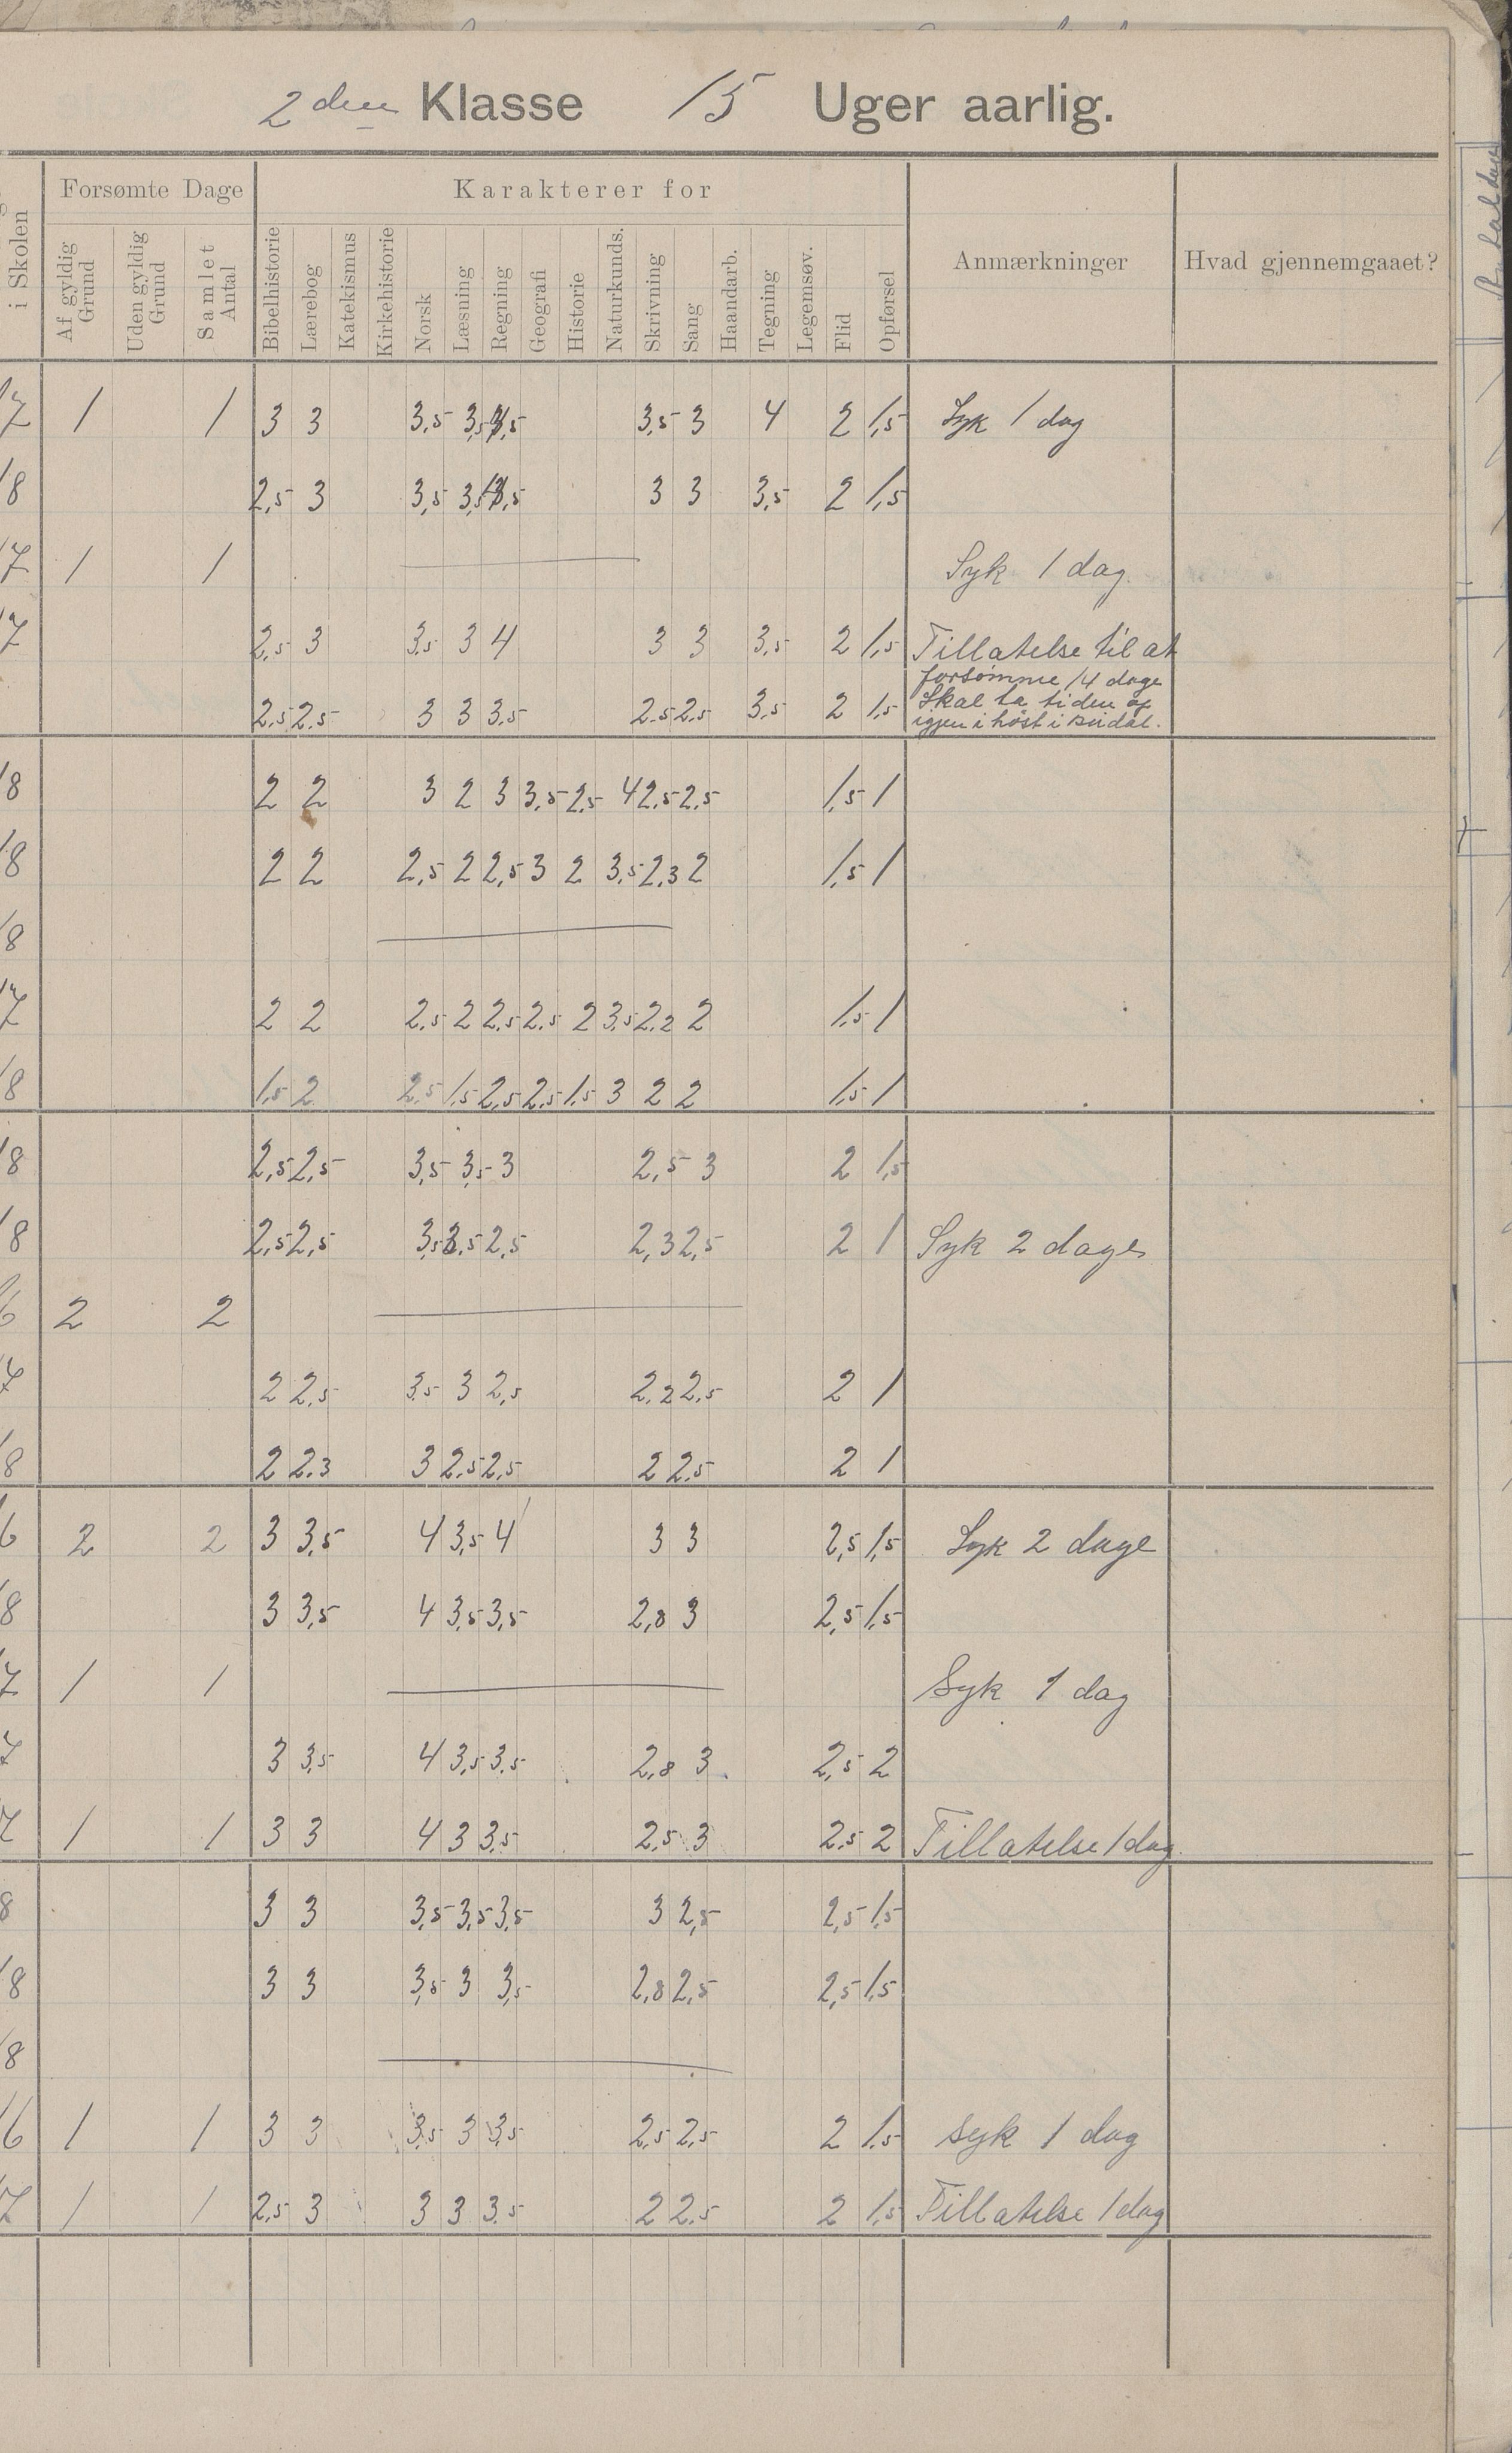 2den Klasse 15 Uger aarlig.
i Skolen | Forsømte Dage | Karakterer for | Anmærkninger | Hvad gjennemgaaet?
Af gyldig Grund | Uden gyldig Grund | Samlet Antal | Bibelhistorie | Lærebog | Katekismus | Kirkehistorie | Norsk | Læsning | Regning | Geografi | Historie | Naturkunds. | Skrivning | Sang | Haandarb. | Tegning | Legemsøv. | Flid | Opførsel
17 1 1 3 3 3,5 3,5 3,5 3 4 2 1,5 Syk 1 dag
18 2,5 3 3,5 3,5 3 3 3,5 2 1,5
17 1 1 — Syk 1 dag.
17 2,5 3 3,5 3 4 3 3 3,5 2 1,5 Tillatelse til at
forsømme 14 dage
2,5 2,5 3 3 3,5 2,5 2,5 3,5 2 1,5 Skal ta tiden
igjen i høst i
18 2 2 3 2 3 3,5 2,5 4 2,5 2,5 1,5 1
18 2 2 2,5 2 2,5 3 2 3,5 2,3 2 1,5 1
18 —
17 2 2 2,5 2 2,5 2,5 2 3,5 2,2 2 1,5 1
18 1,5 2 2,5 1,5 2,5 2,5 1,5 3 2 2 1,5 1
18 2,5 2,5 3,5 3,5 3 2,5 3 2 1,5
18 2,5 2,5 3,5 2,5 2,3 2,5 2 1 Syk 2 dage
16 2 2 —
17 2 2,5 3,5 3 2,5 2,2 2,5 2 1
18 2 2,3 3 2,5 2,5 2 2,5 2 1
16 2 2 3 3,5 4 3,5 4 3 3 2,5 1,5 Syk 2 dage
18 3 3,5 4 3,5 3,5 2,8 3 2,5 1,5
17 1 1 — Syk 1 dag
17 3 3,5 4 3,5 3,5 2,8 3 2,5 2
17 1 1 3 3 4 3 3,5 2,5 3 2,5 2 Tillatelse 1 dag
18 3 3 3,5 3,5 3,5 3 2,5 2,5 1,5
18 3 3 3,5 3 3,5 2,8 2,5 2,5 1,5
18 —
16 1 1 3 3 3,5 3 3,5 2,5 2,5 2 1,5 syk 1 dag
17 1 1 2,5 3 3 3 3,5 2 2,5 2 1,5 Tillatelse 1 dag